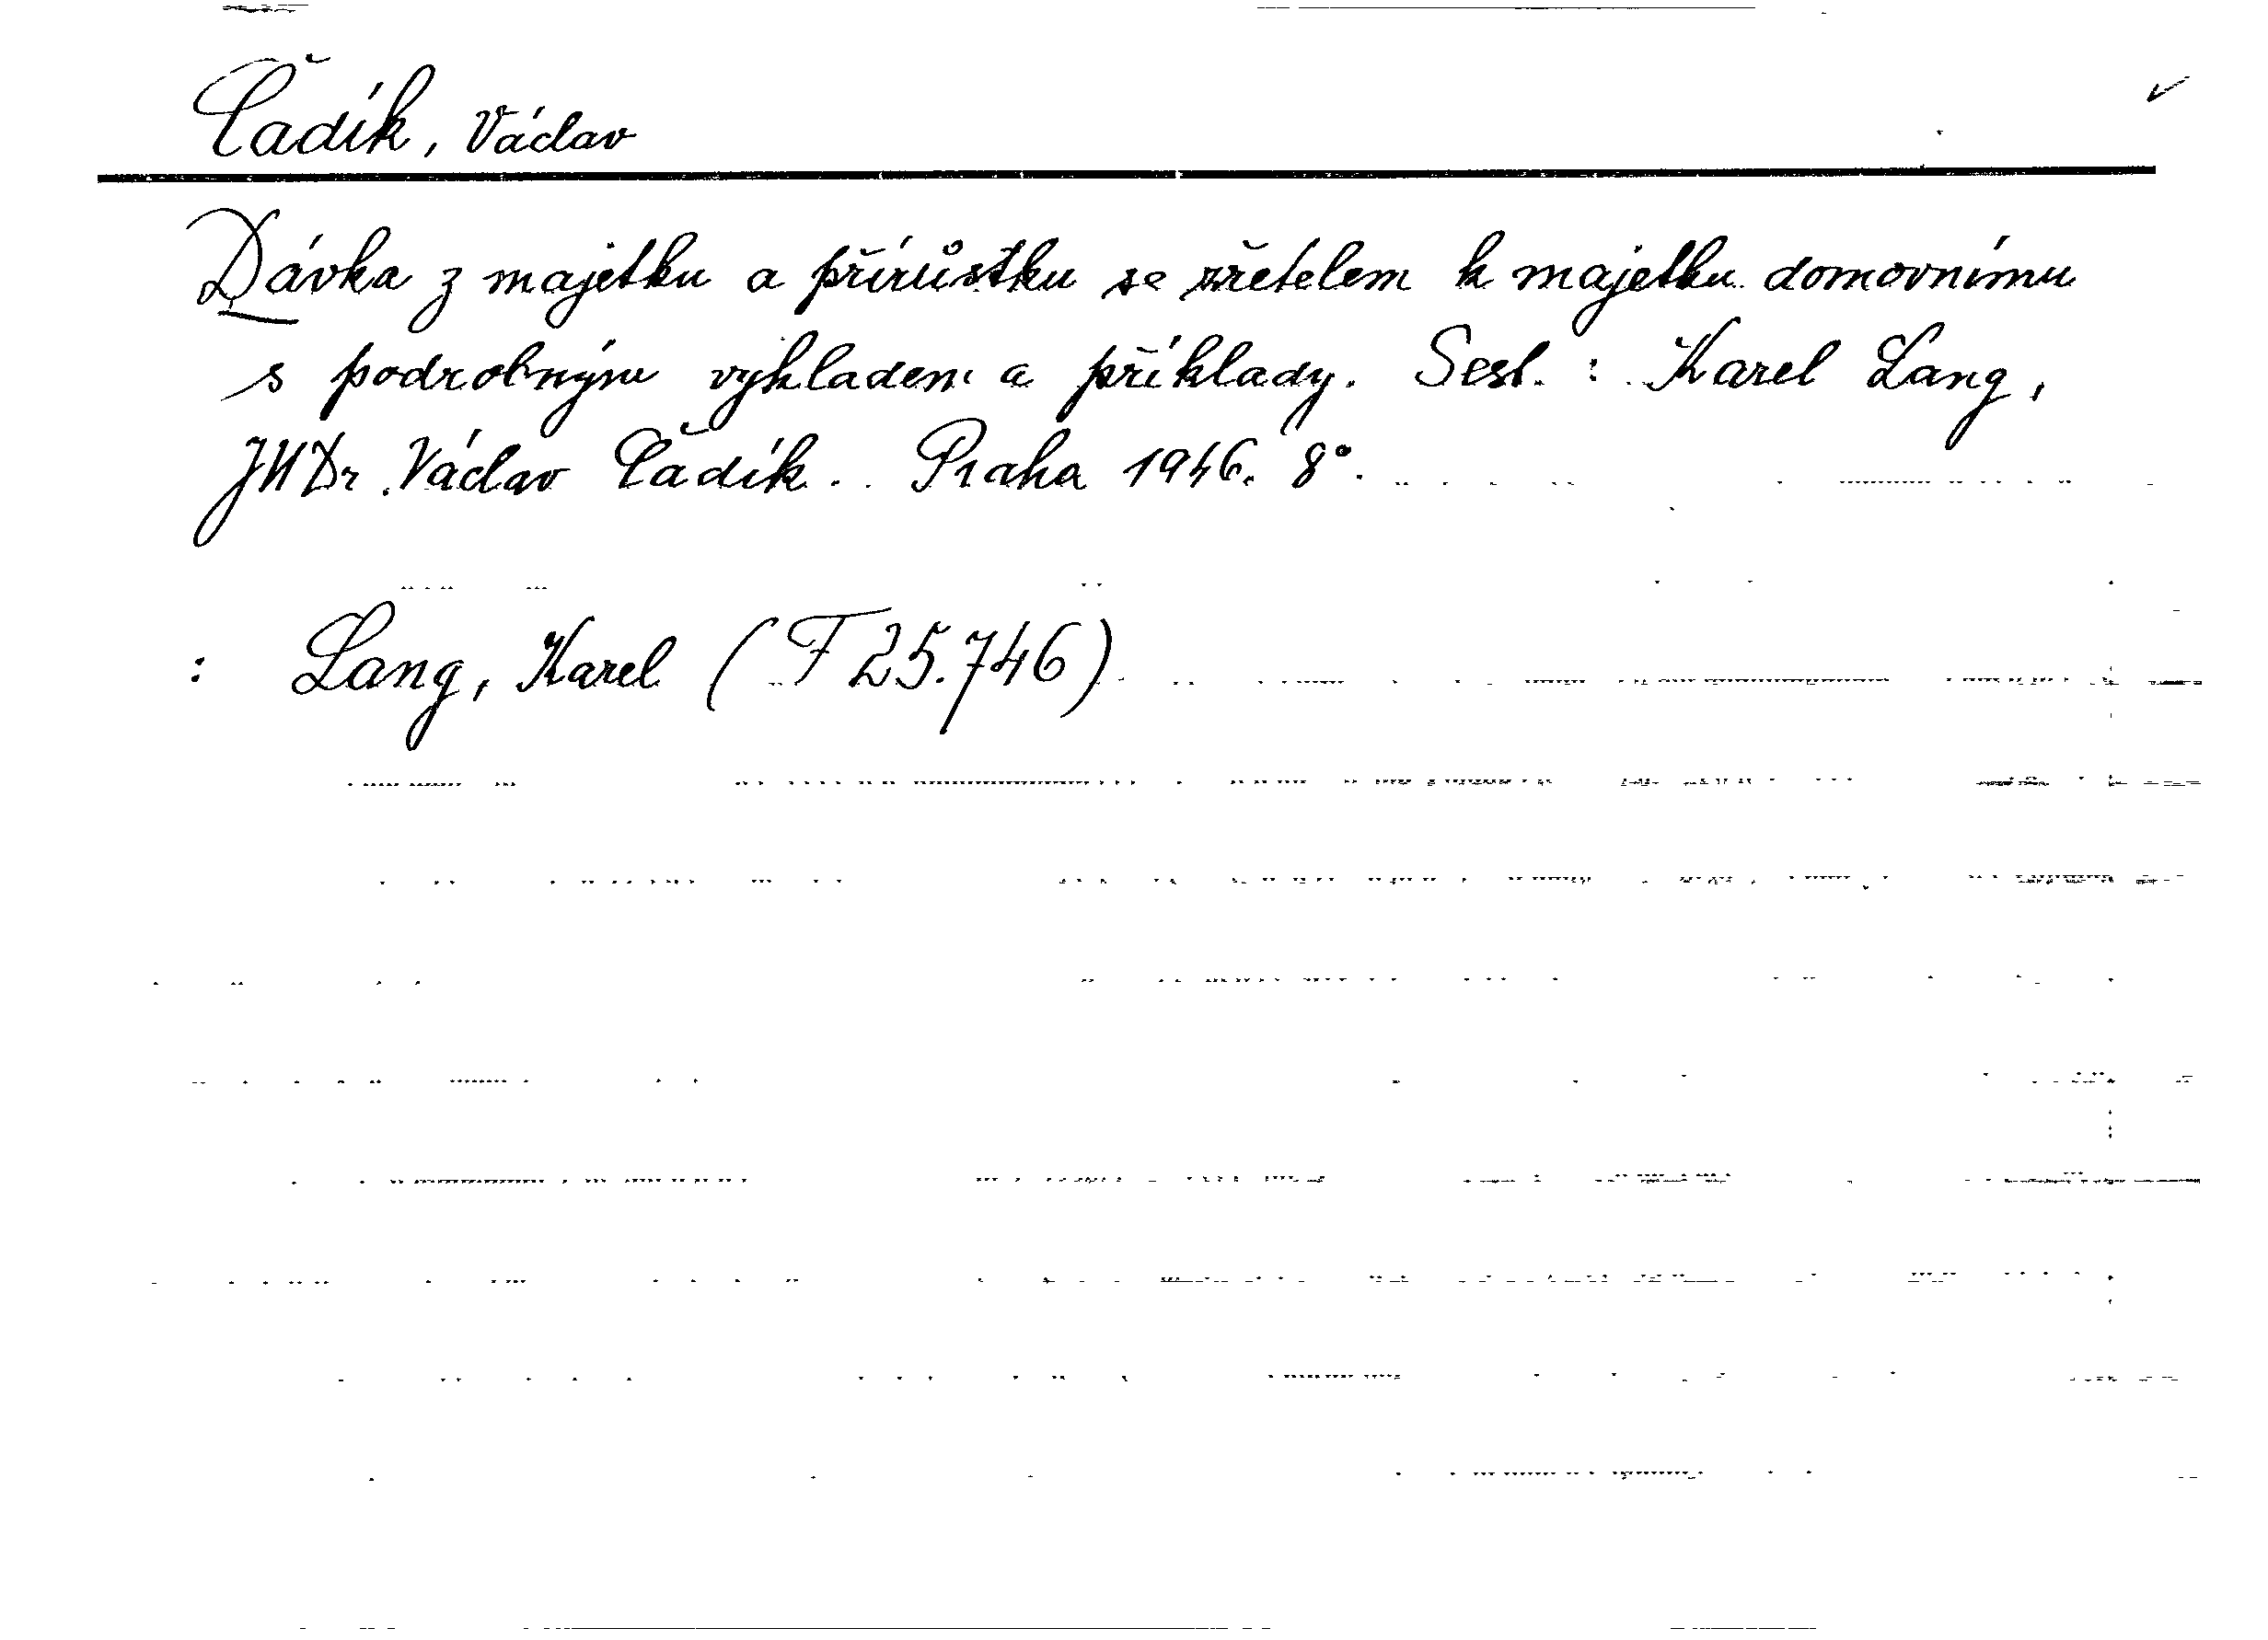 Čadík, Václav
Dávka z majetku a přírůstku se zřetelem k majetku domovnímu
s podrobným výkladem a příklady. Sest. : Karel Lang,
JUDr. Václav Čadík. Praha 1946. 8°.
: Lang, Karel (F 25.746)